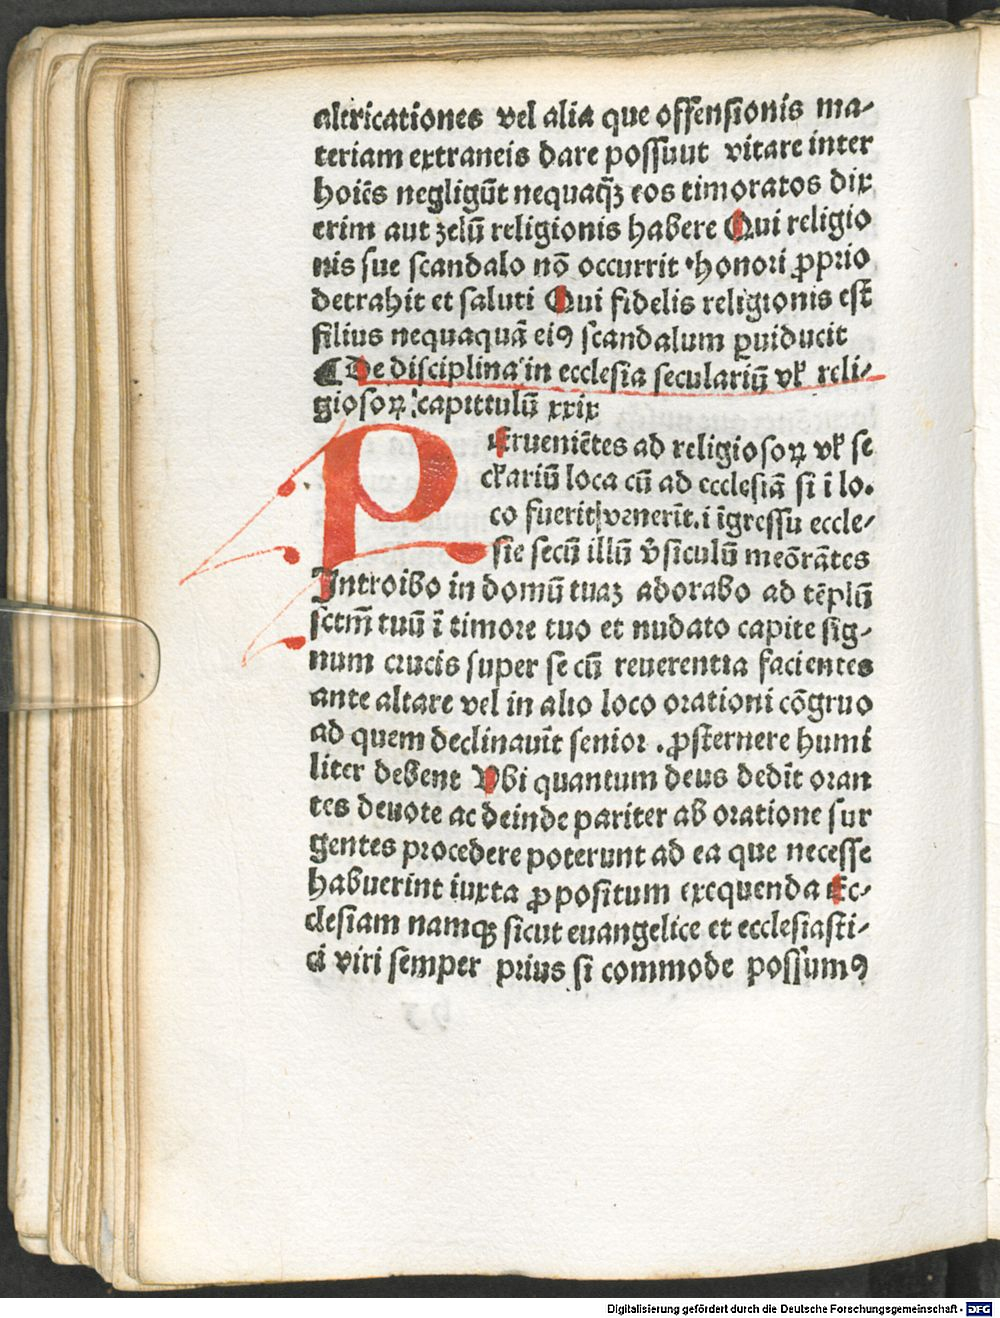 altricationes vel alia que offensionis ma-
teriam extraneis dare possuut vitare inter
hoiēs negligūt nequaqꝫ eos timoratos dix
erim aut zelū religionis habere Qui religio
nis sue scandalo nō occurrit · honori ꝓprio
detrahit et saluti Qui fidelis religionis est
filius nequaquā eiꝯ scandalum ꝑuiducit
¶ De disciplina in ecclesia seculariū vƚ reli-
giosoꝝ capittulū xxix
PErueniētes ad religiosoꝝ vƚ se
cƚariū loca cū ad ecclesiā si ī lo.
co fuerit venerīt . ī īgressu eccle-
sie secū illū v̓siculū meōrātes
Introibo in domū tuaꝫ adorabo ad tēplū
sctm̄ tuū ī timore tuo et nudato capite sig-
num crucis super se cū reuerentia facientes
ante altare vel in alio loco orationi cōgruo
ad quem declinauīt senior . ꝓsternere humi
liter debent Vbi quantum deus dedīt oran
tes deuote ac deinde pariter ab oratione sur
gentes procedere poterunt ad ea que necesse
habuerint iuxta ꝓpositum exequenda Ec-
clesiam namqꝫ sicut euangelice et ecclesiasti-
ci viri semper prius si commode possumꝯ
Digitalisierung gefördert durch die Deutsche Forschungsgemeinschaft - DFG